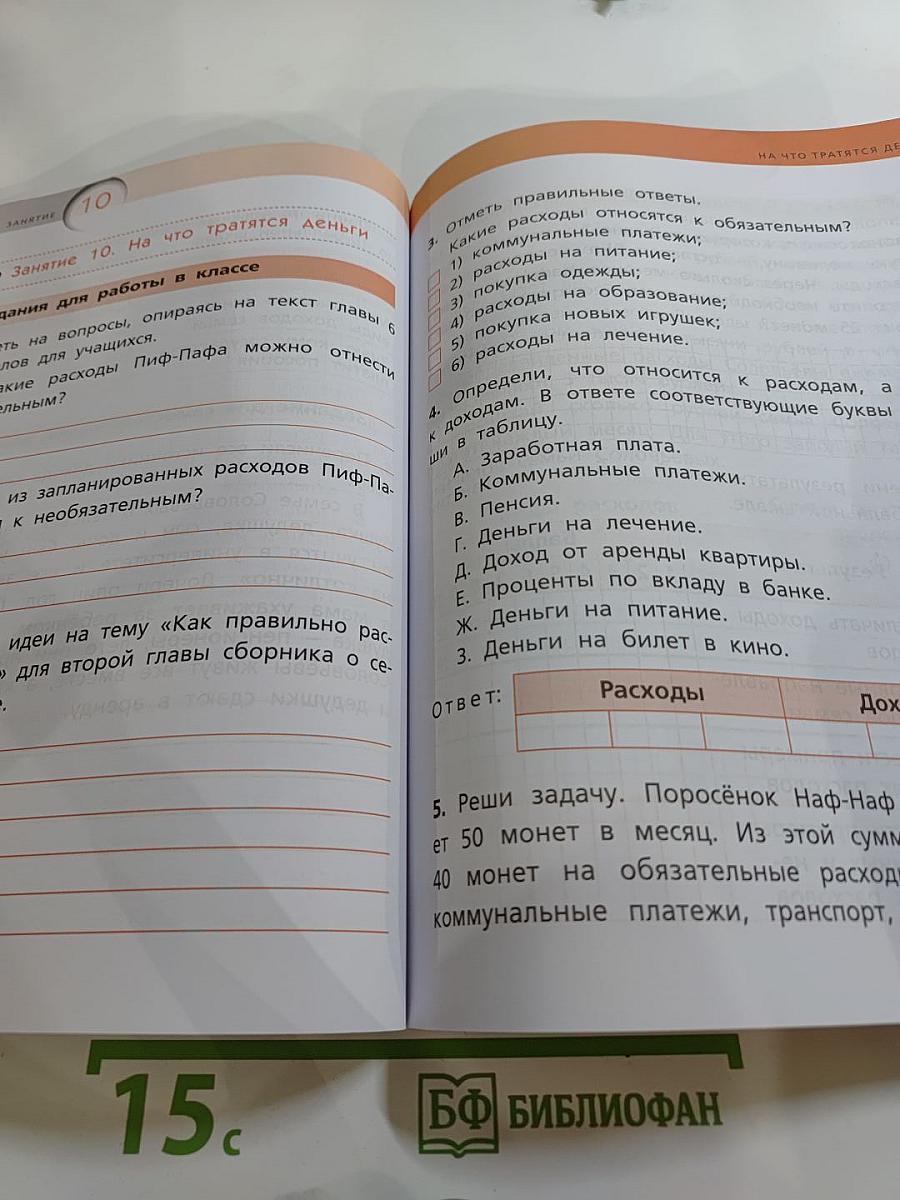 ЗАНЯТИЕ 10
Занятие 10. На что тратятся деньги
дания для работы в классе
еть на вопросы, опираясь на текст главы 6
лов для учащихся.
акие расходы Пиф-Пафа можно отнести
ельным?
из запланированных расходов Пиф-Па-
к необязательным?
идеи на тему «Как правильно рас-
» для второй главы сборника о се-
е.
НА ЧТО ТРАТЯТСЯ ДЕ
3. Отметь правильные ответы.
Какие расходы относятся к обязательным?
1) коммунальные платежи;
2) расходы на питание;
3) покупка одежды;
4) расходы на образование;
5) покупка новых игрушек;
6) расходы на лечение.
4. Определи, что относится к расходам, а
к доходам. В ответе соответствующие буквы
ши в таблицу.
А. Заработная плата.
Б. Коммунальные платежи.
В. Пенсия.
Г. Деньги на лечение.
Д. Доход от аренды квартиры.
Е. Проценты по вкладу в банке.
Ж. Деньги на питание.
З. Деньги на билет в кино.
Ответ: Расходы Дох
5. Реши задачу. Поросёнок Наф-Наф
ет 50 монет в месяц. Из этой сумм
40 монет на обязательные расход
коммунальные платежи, транспорт,
15 с
БФ БИБЛИОФАН